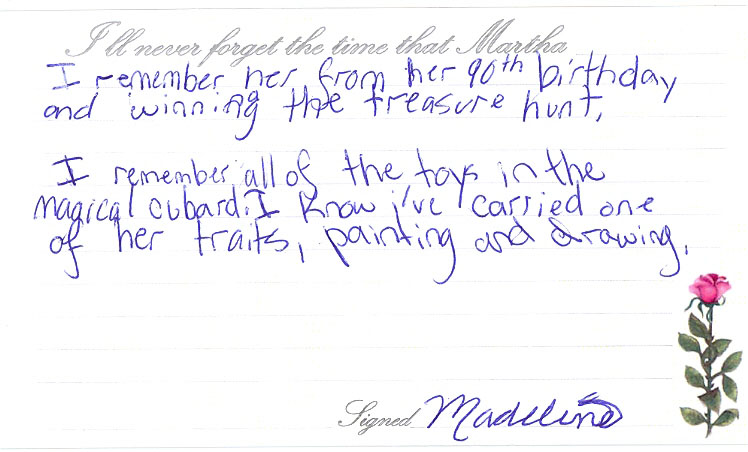 I'll never forget the time that Martha
I remember her from her 90th birthday
and winning the treasure hunt.
I remember all of the toys in the
magical cubard. I know i've carried one
of her traits, painting and drawing.
Signed Madeline